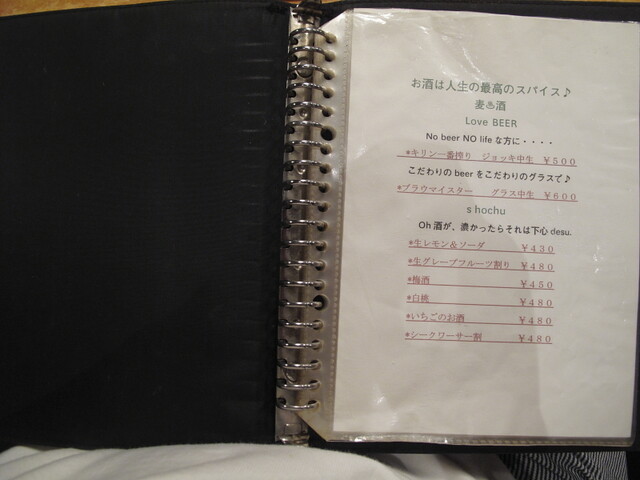 お酒は人生の最高のスパイス♪
麦♨酒
Love BEER
No beer NO life な方に・・・・
*キリン一番搾り ジョッキ中生 ￥５００
こだわりの beer をこだわりのグラスで♪
*ブラウマイスター グラス中生 ￥６００
s hochu
Oh 酒が、濃かったらそれは下心 desu.
*生レモン＆ソーダ ￥４３０
*生グレープフルーツ割り ￥４８０
*梅酒 ￥４５０
*白桃 ￥４８０
*いちごのお酒 ￥４８０
*シークワーサー割 ￥４８０